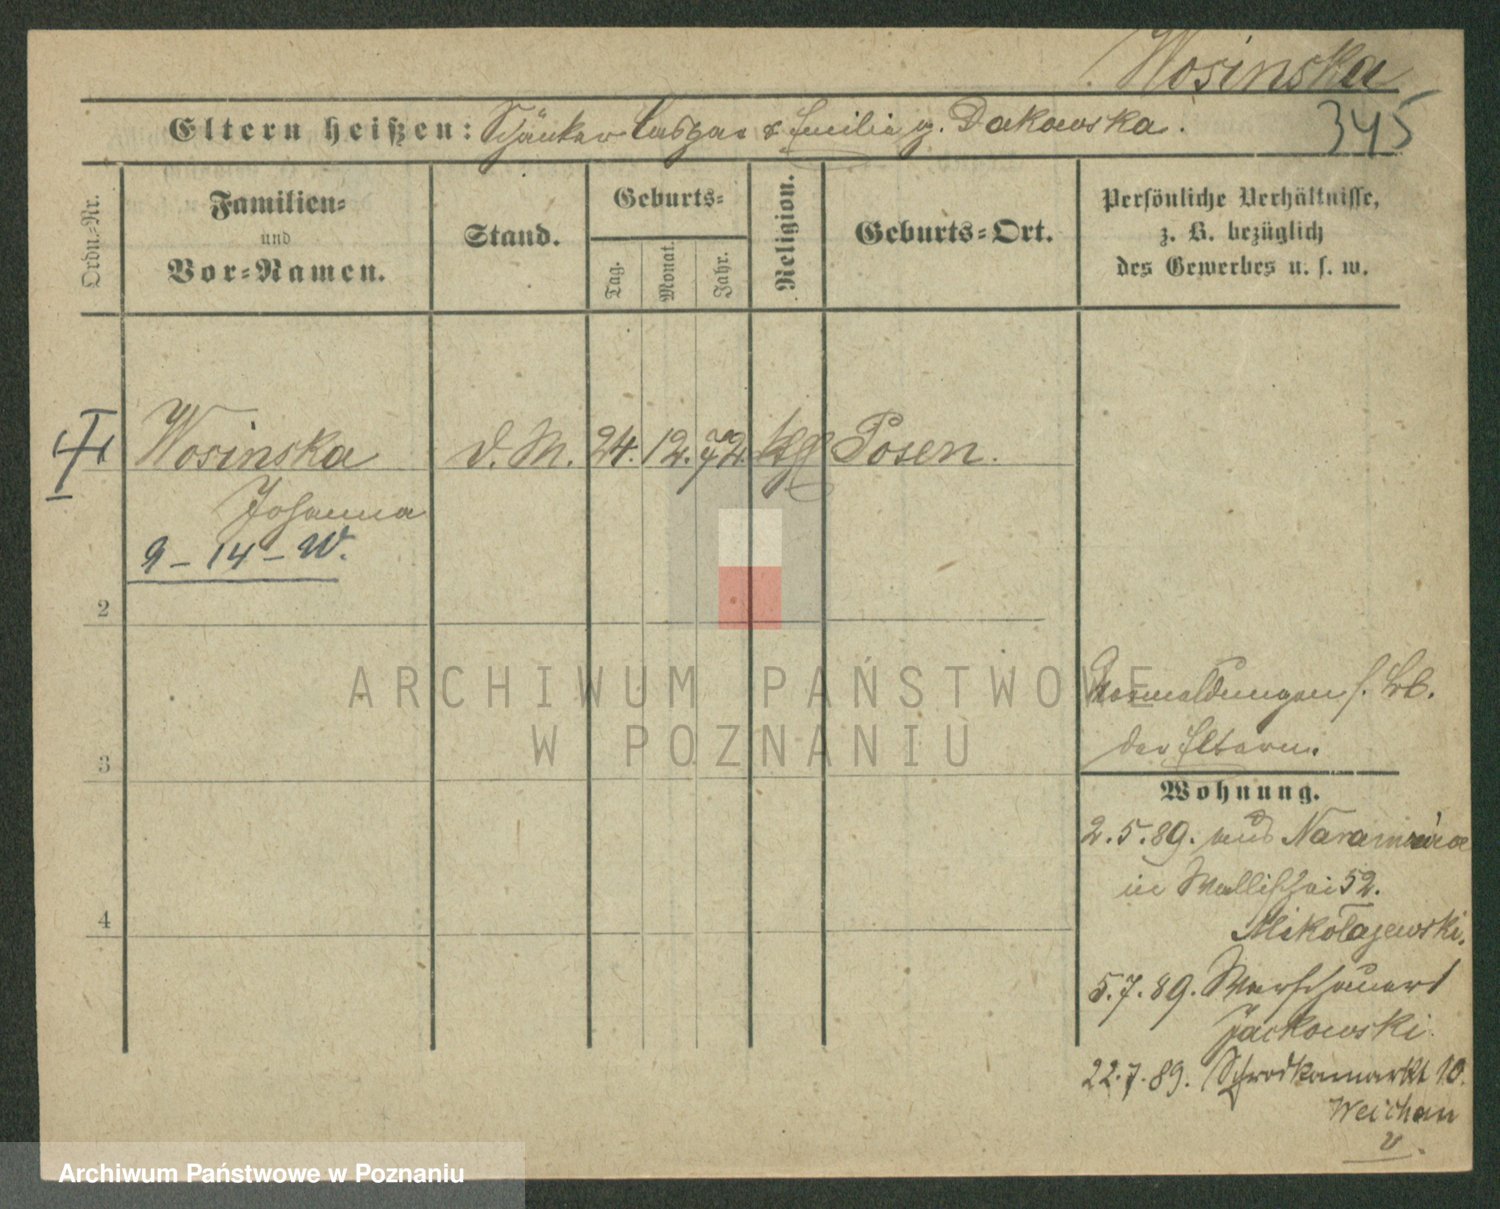 Wosinska
345
Eltern heißen: Schänker Caspar & Emilie g. Dakowska.
Ordn.-Nr.
Familien- und Vor-Namen.
Stand.
Geburts-
Tag.
Monat.
Jahr.
Religion.
Geburts-Ort.
Persönliche Verhältnisse,
z. B. bezüglich
des Gewerbes u. s. w.
Wosinska d. M. 24. 12. 72. kth Posen.
Johanna
9 - 14 - W.
2
3
4
ARCHIWUM PAŃSTWOWE
W POZNANIU
Anmeldungen s. Bb.
der Eltern.
Wohnung.
2.5.89. aus Naramowice
in Wallischei 52.
Mikołajewski.
5.7.89. Warschauer 1
Jackowski.
22.7.89. Schrodkamarkt 10.
Weichan
v.
Archiwum Państwowe w Poznaniu